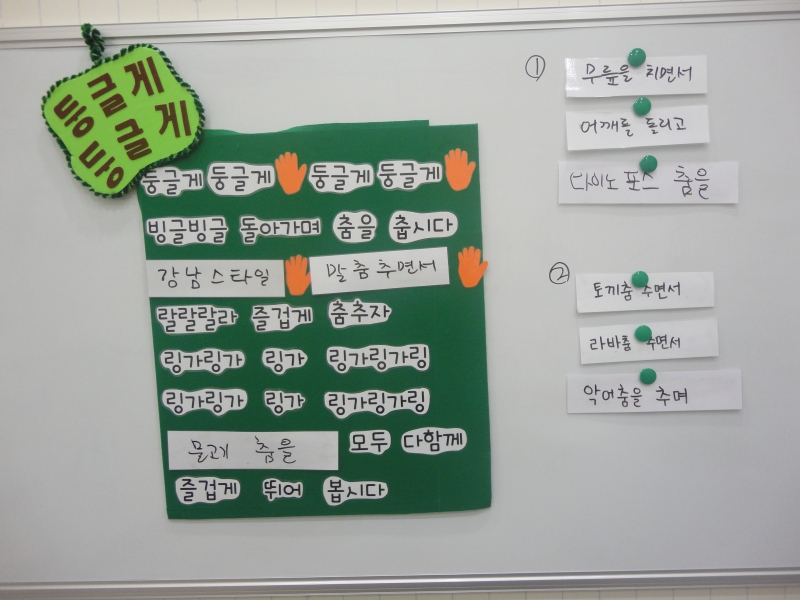 둥글게
둥글게
둥글게 둥글게 둥글게 둥글게
빙글빙글 돌아가며 춤을 춥시다
강남스타일 말춤추면서
랄랄랄라 즐겁게 춤추자
링가링가 링가 링가링가링
링가링가 링가 링가링가링
물고기 춤을 모두 다함께
즐겁게 뛰어 봅시다
①
무릎을 치면서
어깨를 돌리고
다이노 포스 춤을
②
토끼춤 추면서
라바춤 추면서
악어춤을 추며